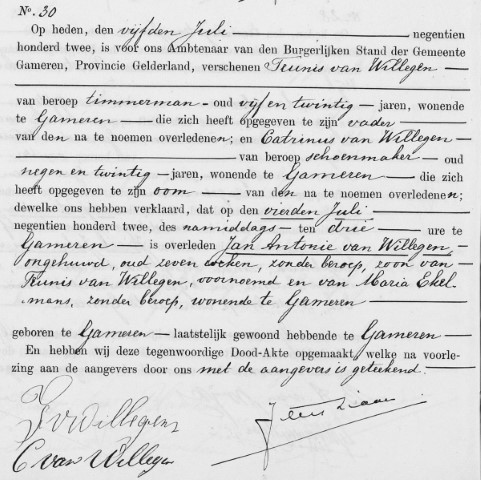 No. 30
Op heden, den vijfden Juli negentien
honderd twee, is voor ons Ambtenaar van den Burgerlijken Stand der Gemeente
Gameren, Provincie Gelderland, verschenen Teunis van Willegen
van beroep timmerman - oud vijf en twintig - jaren, wonende
te Gameren - die zich heeft opgegeven te zijn vader
van den na te noemen overledenen; en Catrinus van Willegen
van beroep schoenmaker - oud
negen en twintig - jaren, wonende te Gameren - die zich
heeft opgegeven te zijn oom - van den na te noemen overledenen;
dewelke ons hebben verklaard, dat op den vierden Juli
negentien honderd twee, des namiddags - ten drie - ure te
Gameren - is overleden Jan Antonie van Willegen,
ongehuwd, oud zeven weken, zonder beroep, zoon van
Teunis van Willegen, voornoemd en van Maria Ekel-
mans, zonder beroep, wonende te Gameren
geboren te Gameren - laatstelijk gewoond hebbende te Gameren
En hebben wij deze tegenwoordige Dood-Akte opgemaakt, welke na voorle-
zing aan de aangevers door ons met de aangevers is geteekend.
T v Willegen
C van Willegen